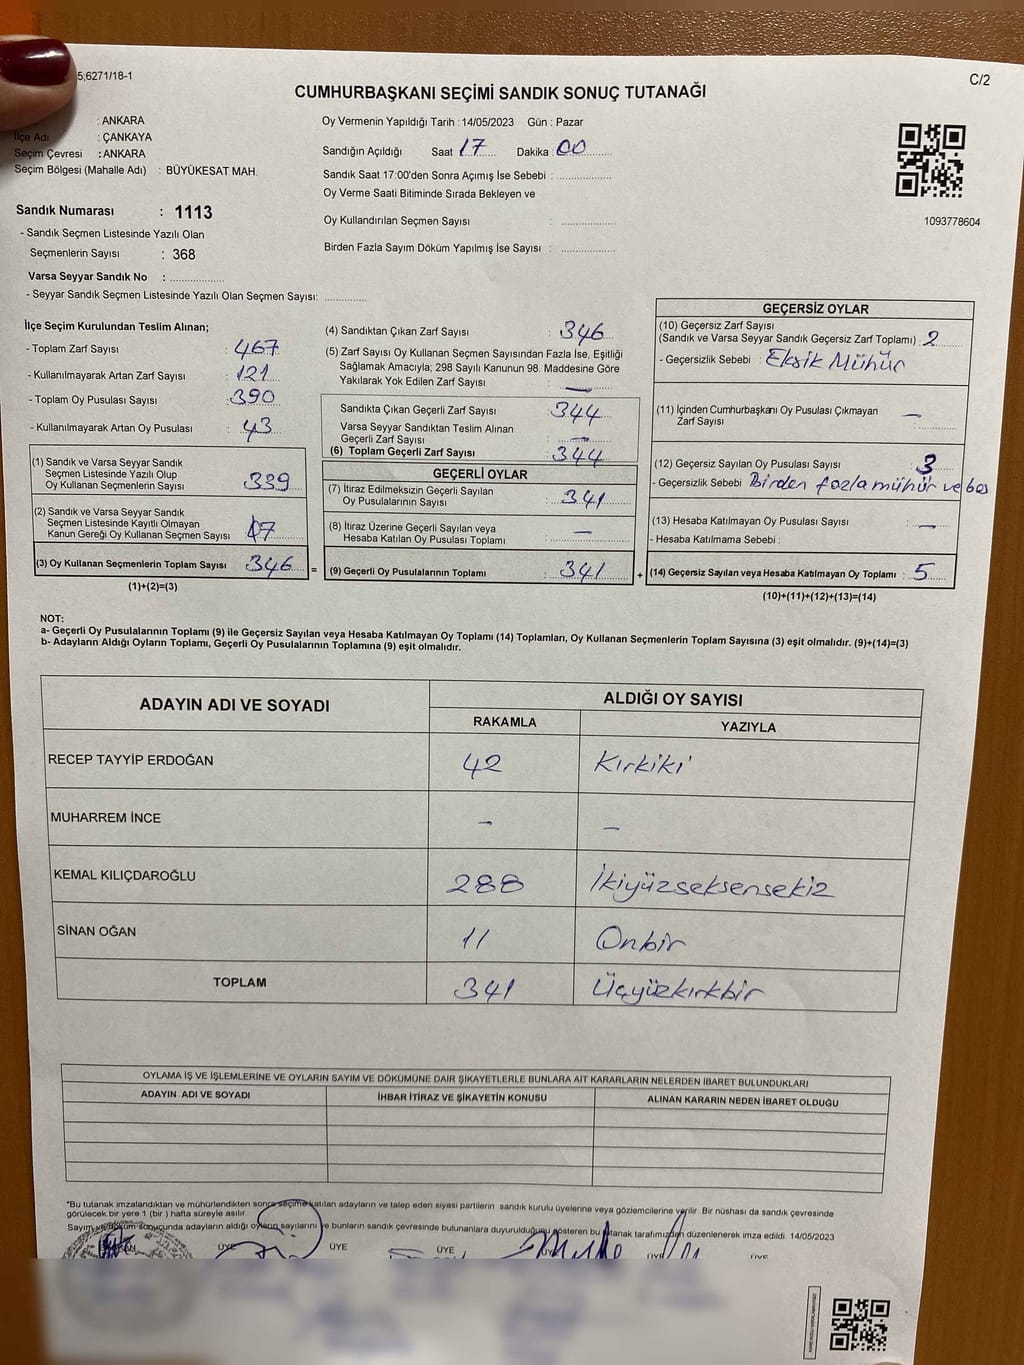 5,6271/18-1
C/2
CUMHURBAŞKANI SEÇİMİ SANDIK SONUÇ TUTANAĞI
: ANKARA
İlçe Adı : ÇANKAYA
Seçim Çevresi : ANKARA
Seçim Bölgesi (Mahalle Adı) : BÜYÜKESAT MAH.
Sandık Numarası : 1113
- Sandık Seçmen Listesinde Yazılı Olan
Seçmenlerin Sayısı : 368
Varsa Seyyar Sandık No : ................
- Seyyar Sandık Seçmen Listesinde Yazılı Olan Seçmen Sayısı: .............
Oy Vermenin Yapıldığı Tarih : 14/05/2023 Gün : Pazar
Sandığın Açıldığı Saat 17 Dakika : 00
Sandık Saat 17:00'den Sonra Açımış İse Sebebi : ................
Oy Verme Saati Bitiminde Sırada Bekleyen ve
Oy Kullandırılan Seçmen Sayısı : ................
Birden Fazla Sayım Döküm Yapılmış İse Sayısı : ................
1093778604
İlçe Seçim Kurulundan Teslim Alınan;
- Toplam Zarf Sayısı : 467
- Kullanılmayarak Artan Zarf Sayısı : 121
- Toplam Oy Pusulası Sayısı : 390
- Kullanılmayarak Artan Oy Pusulası : 43
(1) Sandık ve Varsa Seyyar Sandık
Seçmen Listesinde Yazılı Olup
Oy Kullanan Seçmenlerin Sayısı : 339
(2) Sandık ve Varsa Seyyar Sandık
Seçmen Listesinde Kayıtlı Olmayan
Kanun Gereği Oy Kullanan Seçmen Sayısı : 7
(3) Oy Kullanan Seçmenlerin Toplam Sayısı : 346 =
(1)+(2)=(3)
(4) Sandıktan Çıkan Zarf Sayısı : 346
(5) Zarf Sayısı Oy Kullanan Seçmen Sayısından Fazla İse, Eşitliği
Sağlamak Amacıyla; 298 Sayılı Kanunun 98. Maddesine Göre
Yakılarak Yok Edilen Zarf Sayısı : —
Sandıkta Çıkan Geçerli Zarf Sayısı : 344
Varsa Seyyar Sandıktan Teslim Alınan
Geçerli Zarf Sayısı : —
(6) Toplam Geçerli Zarf Sayısı : 344
GEÇERLİ OYLAR
(7) İtiraz Edilmeksizin Geçerli Sayılan
Oy Pusulasının Sayısı : 341
(8) İtiraz Üzerine Geçerli Sayılan veya
Hesaba Katılan Oy Pusulası Toplamı : —
(9) Geçerli Oy Pusulalarının Toplamı : 341 +
GEÇERSİZ OYLAR
(10) Geçersiz Zarf Sayısı
(Sandık ve Varsa Seyyar Sandık Geçersiz Zarf Toplamı) : 2
- Geçersizlik Sebebi : Eksik Mühür
(11) İçinden Cumhurbaşkanı Oy Pusulası Çıkmayan
Zarf Sayısı : —
(12) Geçersiz Sayılan Oy Pusulası Sayısı : 3
- Geçersizlik Sebebi Birden fazla mühür ve boş
(13) Hesaba Katılmayan Oy Pusulası Sayısı : —
- Hesaba Katılmama Sebebi :
(14) Geçersiz Sayılan veya Hesaba Katılmayan Oy Toplamı : 5
(10)+(11)+(12)+(13)=(14)
NOT:
a- Geçerli Oy Pusulalarının Toplamı (9) ile Geçersiz Sayılan veya Hesaba Katılmayan Oy Toplamı (14) Toplamları, Oy Kullanan Seçmenlerin Toplam Sayısına (3) eşit olmalıdır. (9)+(14)=(3)
b- Adayların Aldığı Oyların Toplamı, Geçerli Oy Pusulalarının Toplamına (9) eşit olmalıdır.
ADAYIN ADI VE SOYADI ALDIĞI OY SAYISI
RAKAMLA YAZIYLA
RECEP TAYYİP ERDOĞAN 42 Kırkiki
MUHARREM İNCE - -
KEMAL KILIÇDAROĞLU 288 İkiyüzseksensekiz
SİNAN OĞAN 11 Onbir
TOPLAM 341 Üçyüzkırkbir
OYLAMA İŞ VE İŞLEMLERİNE VE OYLARIN SAYIM VE DÖKÜMÜNE DAİR ŞİKAYETLERLE BUNLARA AİT KARARLARIN NELERDEN İBARET BULUNDUKLARI
ADAYIN ADI VE SOYADI İHBAR İTİRAZ VE ŞİKAYETİN KONUSU ALINAN KARARIN NEDEN İBARET OLDUĞU
*Bu tutanak imzalandıktan ve mühürlendikten sonra seçime katılan adayların ve talep eden siyasi partilerin sandık kurulu üyelerine veya gözlemcilerine verilir. Bir nüshası da sandık çevresinde
görülecek bir yere 1 (bir ) hafta süreyle asılır.
Sayım ve döküm sonucunda adayların aldığı oyların sayılarını ve bunların sandık çevresinde bulunanlara duyurulduğunu gösteren bu tutanak tarafımızdan düzenlenerek imza edildi. 14/05/2023
BAŞKAN ÜYE ÜYE ÜYE ÜYE ÜYE ÜYE